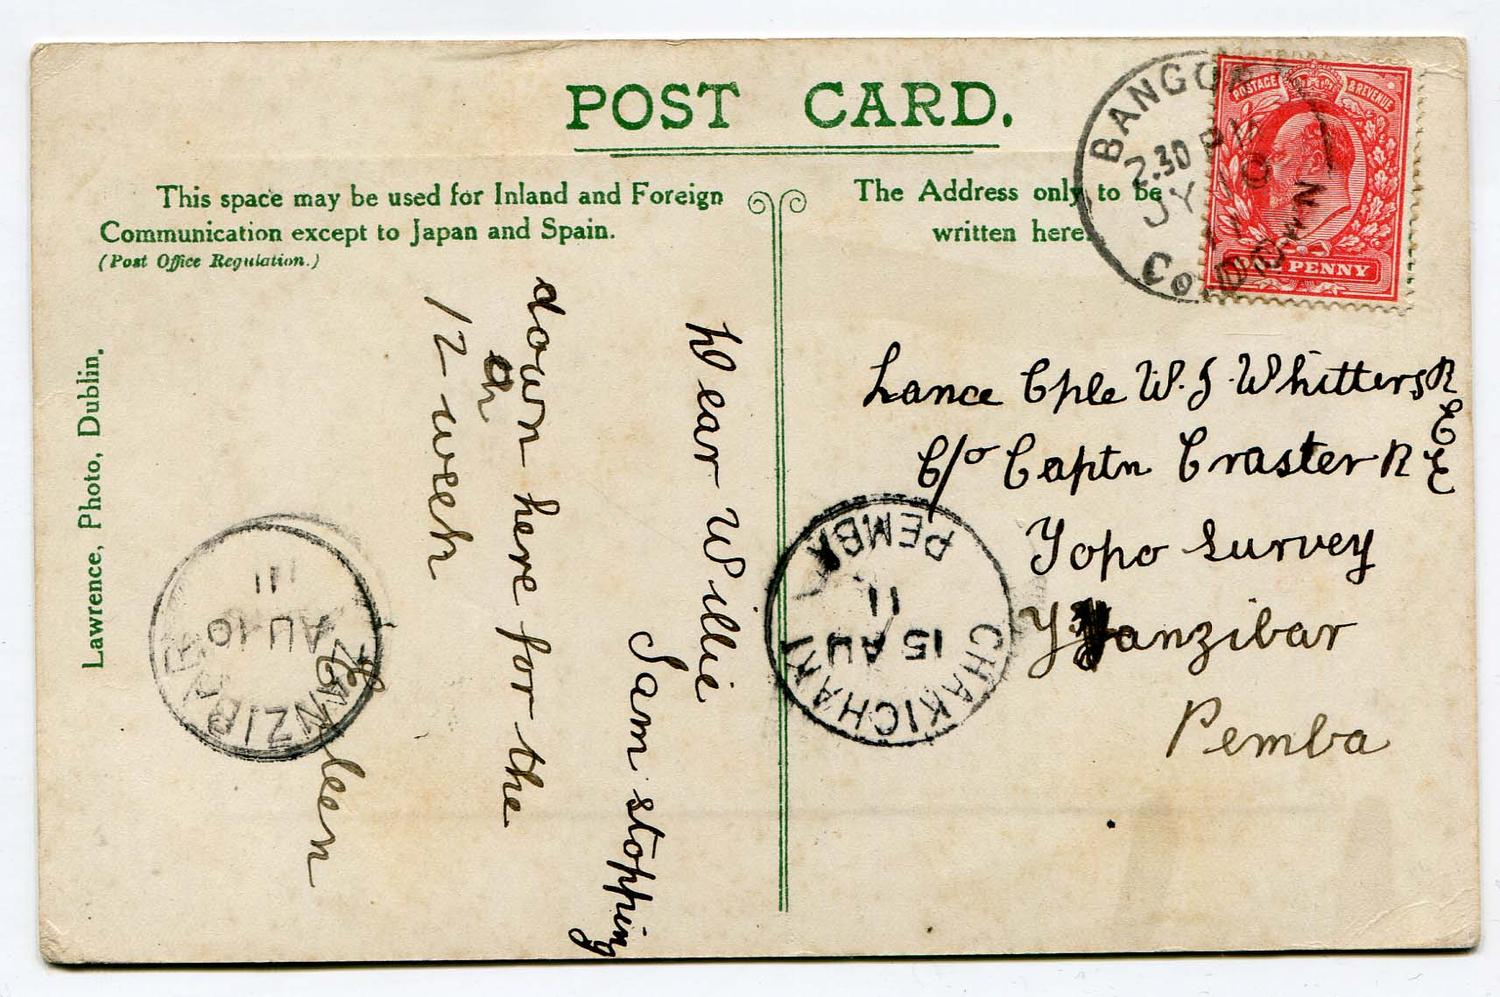 POST CARD.
This space may be used for Inland and Foreign
Communication except to Japan and Spain.
(Post Office Regulation.)
The Address only to be
written here.
Lawrence, Photo, Dublin.
Dear Willie
Sam stopping
down here for the
12 week
Lance Cple W. J. Whitters R E
C/o Captn Craster R E
Topo Survey
Zanzibar
Pemba
BANGOR
2.30 PM
JY
Co. DOWN
POSTAGE & REVENUE
ONE PENNY
ZANZIBAR
AU 10
11
CHAKICHAKI
15 AU
11
PEMBA